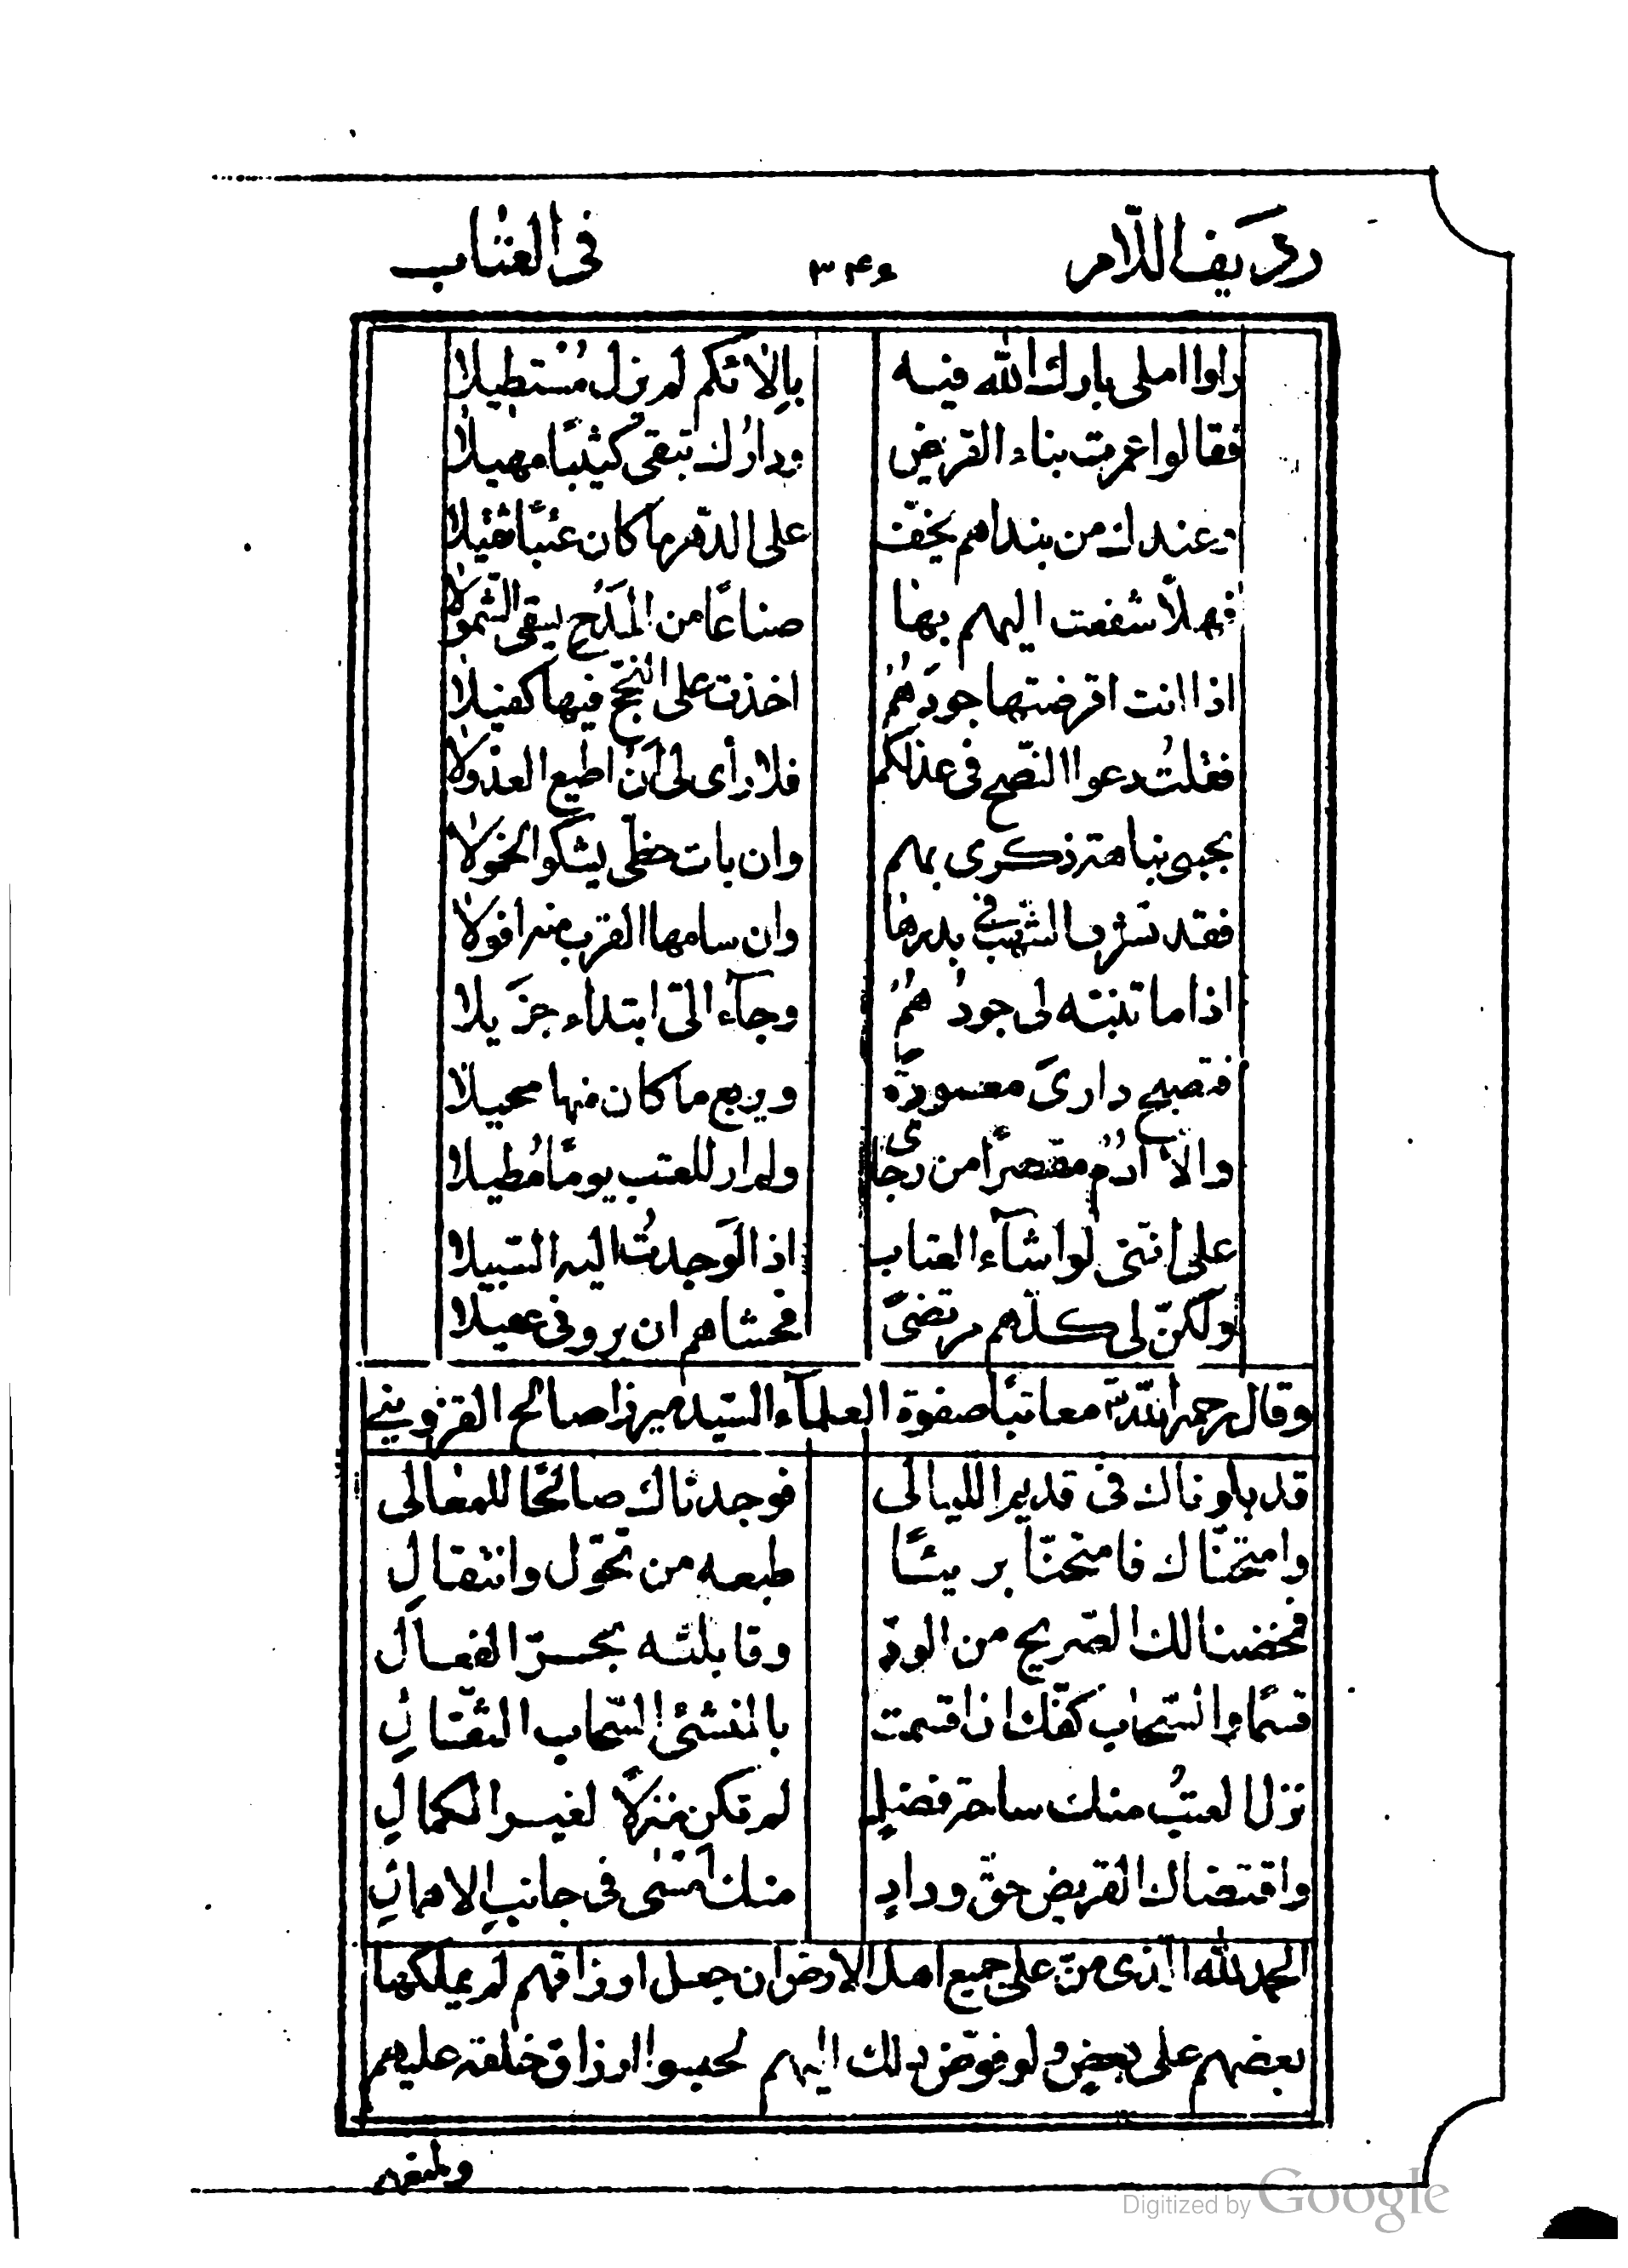 رديف اللام ٣٤٦ فى العتاب
راوا املى بارك الله فيه بآلائكم لم نزل مستطيلا
فقالوا عمرت بناء القريض ودارك تبقى كثيبًا مهيلا
وعندك من بنداهم يخفّ على الدّهر ما كان عبئًا ثقيلا
فهلّا شفعت اليهم بها صناعًا من المدح يبقى الشّمولا
اذا انت اقرضتها جودهم اخذت على النجح فيها كفيلا
فقلت دعوا النّصح فى عذلكم فلا رأى لى أن اطيع العذولا
بحبى نباهة ذكرى بهم وان بات حظّى يشكو الخمولا
فقد تشرف الشّهب فى بدرها وان سامها القرب منه افولا
اذا ما تنبّه لى جودهم وجآء الىّ ابتداء جزيلا
فتصبح دارى معمورة وربع ما كان منها محيلا
والا ادم مقصرًا من رجاى ولم ار للعتب يومًا مطيلا
على انّنى لو اشآء العتاب اذا لوجدت اليه السّبيلا
ولكنّ لى كلّهم مرتضىً فحشاهم ان يرونى عميلا
وقال رحمه الله معاتبًا صفوة العلمآء السّيد ميرزا صالح القزوينى
قد بلوناك فى قديم الليالى فوجدناك صالحًا للمعالى
وامتحنّاك فامتحنّا بريئًا طبعه من تحوّل وانتقالِ
فمحضنا لك الصّريح من الودّ وقابلته بحسن الفعال
قسمًا والسّحاب كفّك ان اقسمت بالمنشئ السّحاب الثقالِ
نزل العتب منك ساحة فضلٍ لم تكن منزلًا لغير الكمالِ
واقتضاك القريض حقّ ودادٍ منك امسى فى جانب الاهمالِ
الحمد لله الذى منّ على جميع اهل الارض ان جعل ارزاقهم لم يملكها
بعضهم على بعض ولو فوّض ذلك اليهم لحبسوا ارزاق خلقه عليهم
Digitized by Google